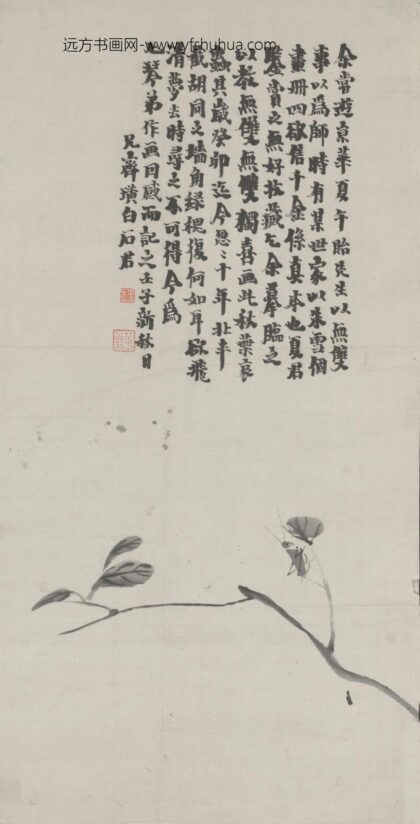 远方书画网-www.yfshuhua.com
余嘗遊京華夏午詒先生以無雙
事以爲師時有某世家以朱雪個
畫冊四欲售千金條真本也夏君
鑒賞之無好技余摹臨之
以教無雙無雙獨喜画此秋葉衰
蟲其歲癸卯迄今忽二十年北平
截胡同之墻角綠槐復何如耳欲飛
有夢去時尋之不可得今爲
琴弟作画回感而記之壬子新秋日
兄齊璜白石君